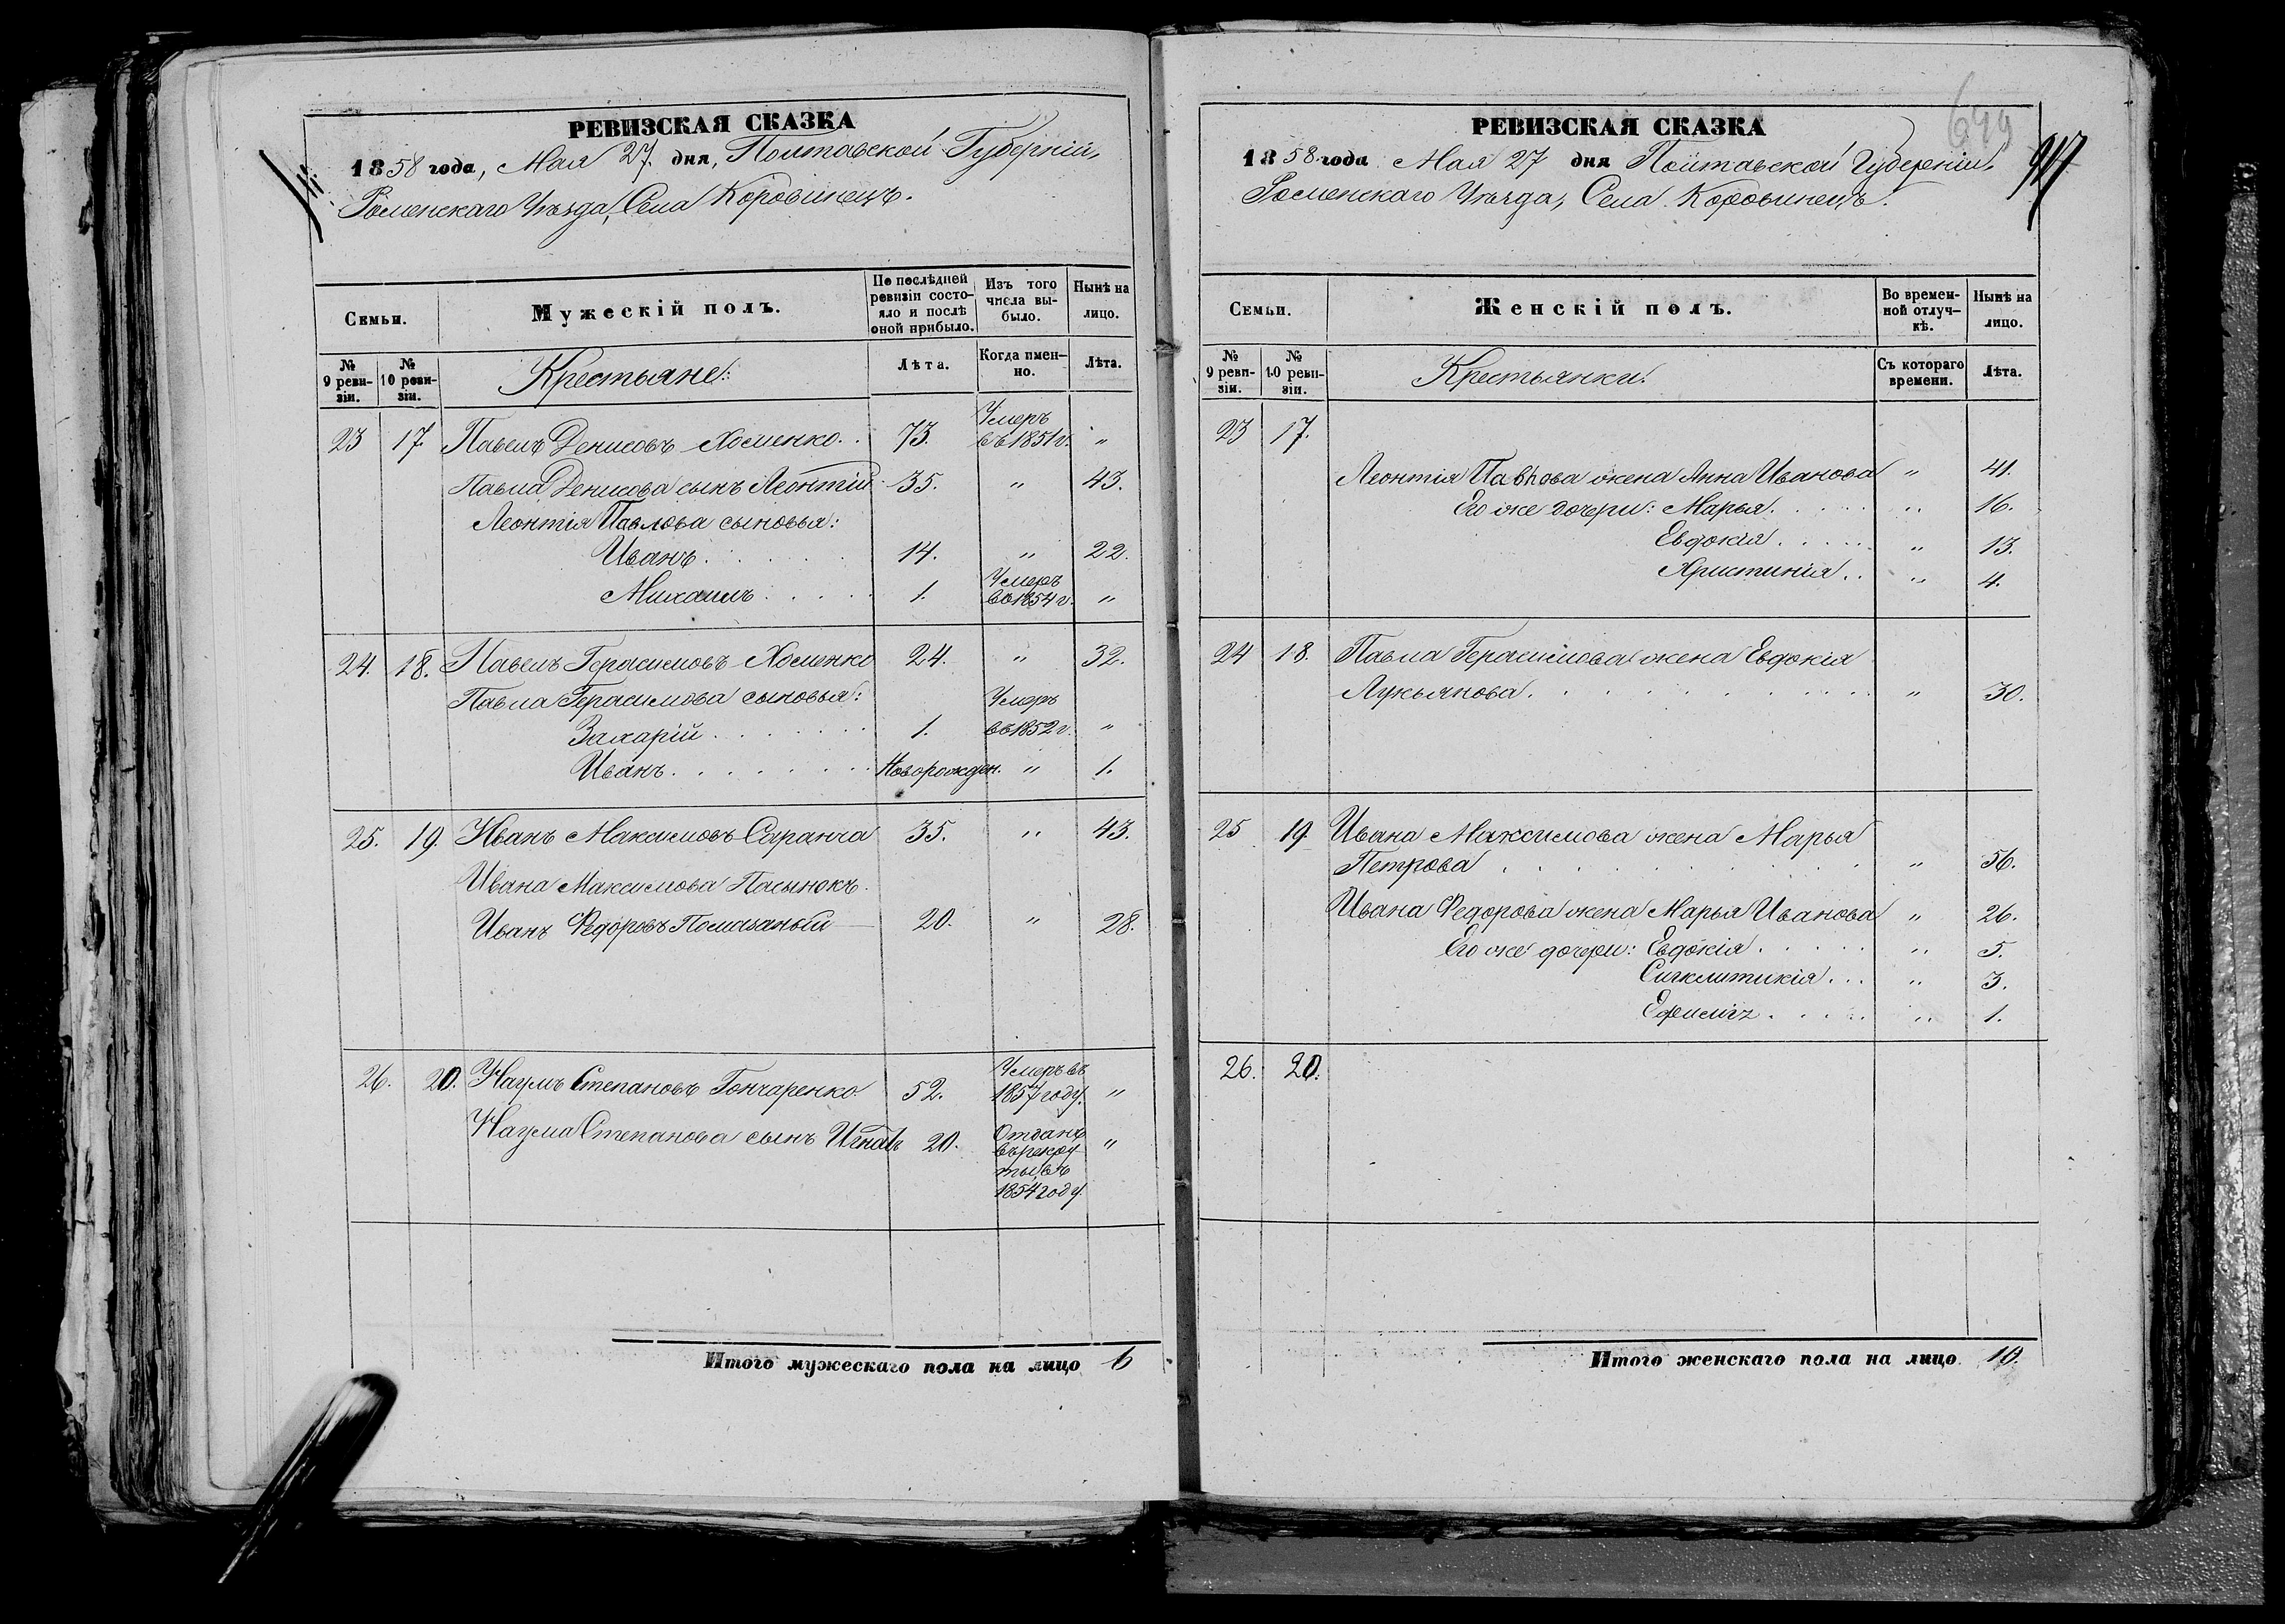 РЕВИЗСКАЯ СКАЗКА
1858 года, Мая 27 дня, Полтавской Губерніи,
Роменскаго Уѣзда, Села Коровинецъ.
Семьи.
Мужескій полъ.
По послѣдней ревизіи состояло и послѣ оной прибыло.
Изъ того числа выбыло.
Нынѣ на лицо.
№ 9 ревизіи.
№ 10 ревизіи.
Крестьяне:
Лѣта.
Когда именно.
Лѣта.
23 17. Павелъ Денисовъ Хоменко. . 73. Умеръ въ 1851 г. "
Павла Денисова сынъ Леонтій 35. " 43.
Леонтія Павлова сыновья:
Иванъ . . . . . . 14. " 22.
Михаилъ . . . . . 1. Умеръ въ 1854 г. "
24. 18. Павелъ Герасимовъ Хоменко 24. " 32.
Павла Герасимова сыновья:
Захарій . . . . . . . 1. Умеръ въ 1852 г. "
Иванъ . . . . . . . . Новорожден. " 1.
25. 19. Иванъ Максимовъ Саранча 35. " 43.
Ивана Максимова Пасынокъ
Иванъ Федоровъ 20. " 28.
26. 20. Наумъ Степановъ Гончаренко. 52. Умеръ въ 1857 году. "
Наума Степанова сынъ Игнатъ 20. Отданъ въ рекруты въ 1854 году. "
Итого мужескаго пола на лицо 6
649
РЕВИЗСКАЯ СКАЗКА
1858 года Мая 27 дня Полтавской Губерніи,
Роменскаго Уѣзда, Села Коровинецъ.
Семьи.
Женскій полъ.
Во временной отлучкѣ.
Нынѣ на лицо.
№ 9 ревизіи.
№ 10 ревизіи.
Крестьянки:
Съ котораго времени.
Лѣта.
23 17.
Леонтія Павлова жена Анна Иванова " 41.
Его же дочери: Марья. . . . . " 16.
Евдокія . . . . . " 13.
Христинія . . " 4.
24 18. Павла Герасимова жена Евдокія
Лукьянова . . . . . . . . . . " 30.
25 19 Ивана Максимова жена Марья
Петрова . . . . . . . . . " 56.
Ивана Федорова жена Марья Иванова " 26.
Его же дочери: Евдокія . . . . . " 5.
Сигклитикія . . . " 3.
. . . . . " 1.
26. 20.
Итого женскаго пола на лицо. 10.